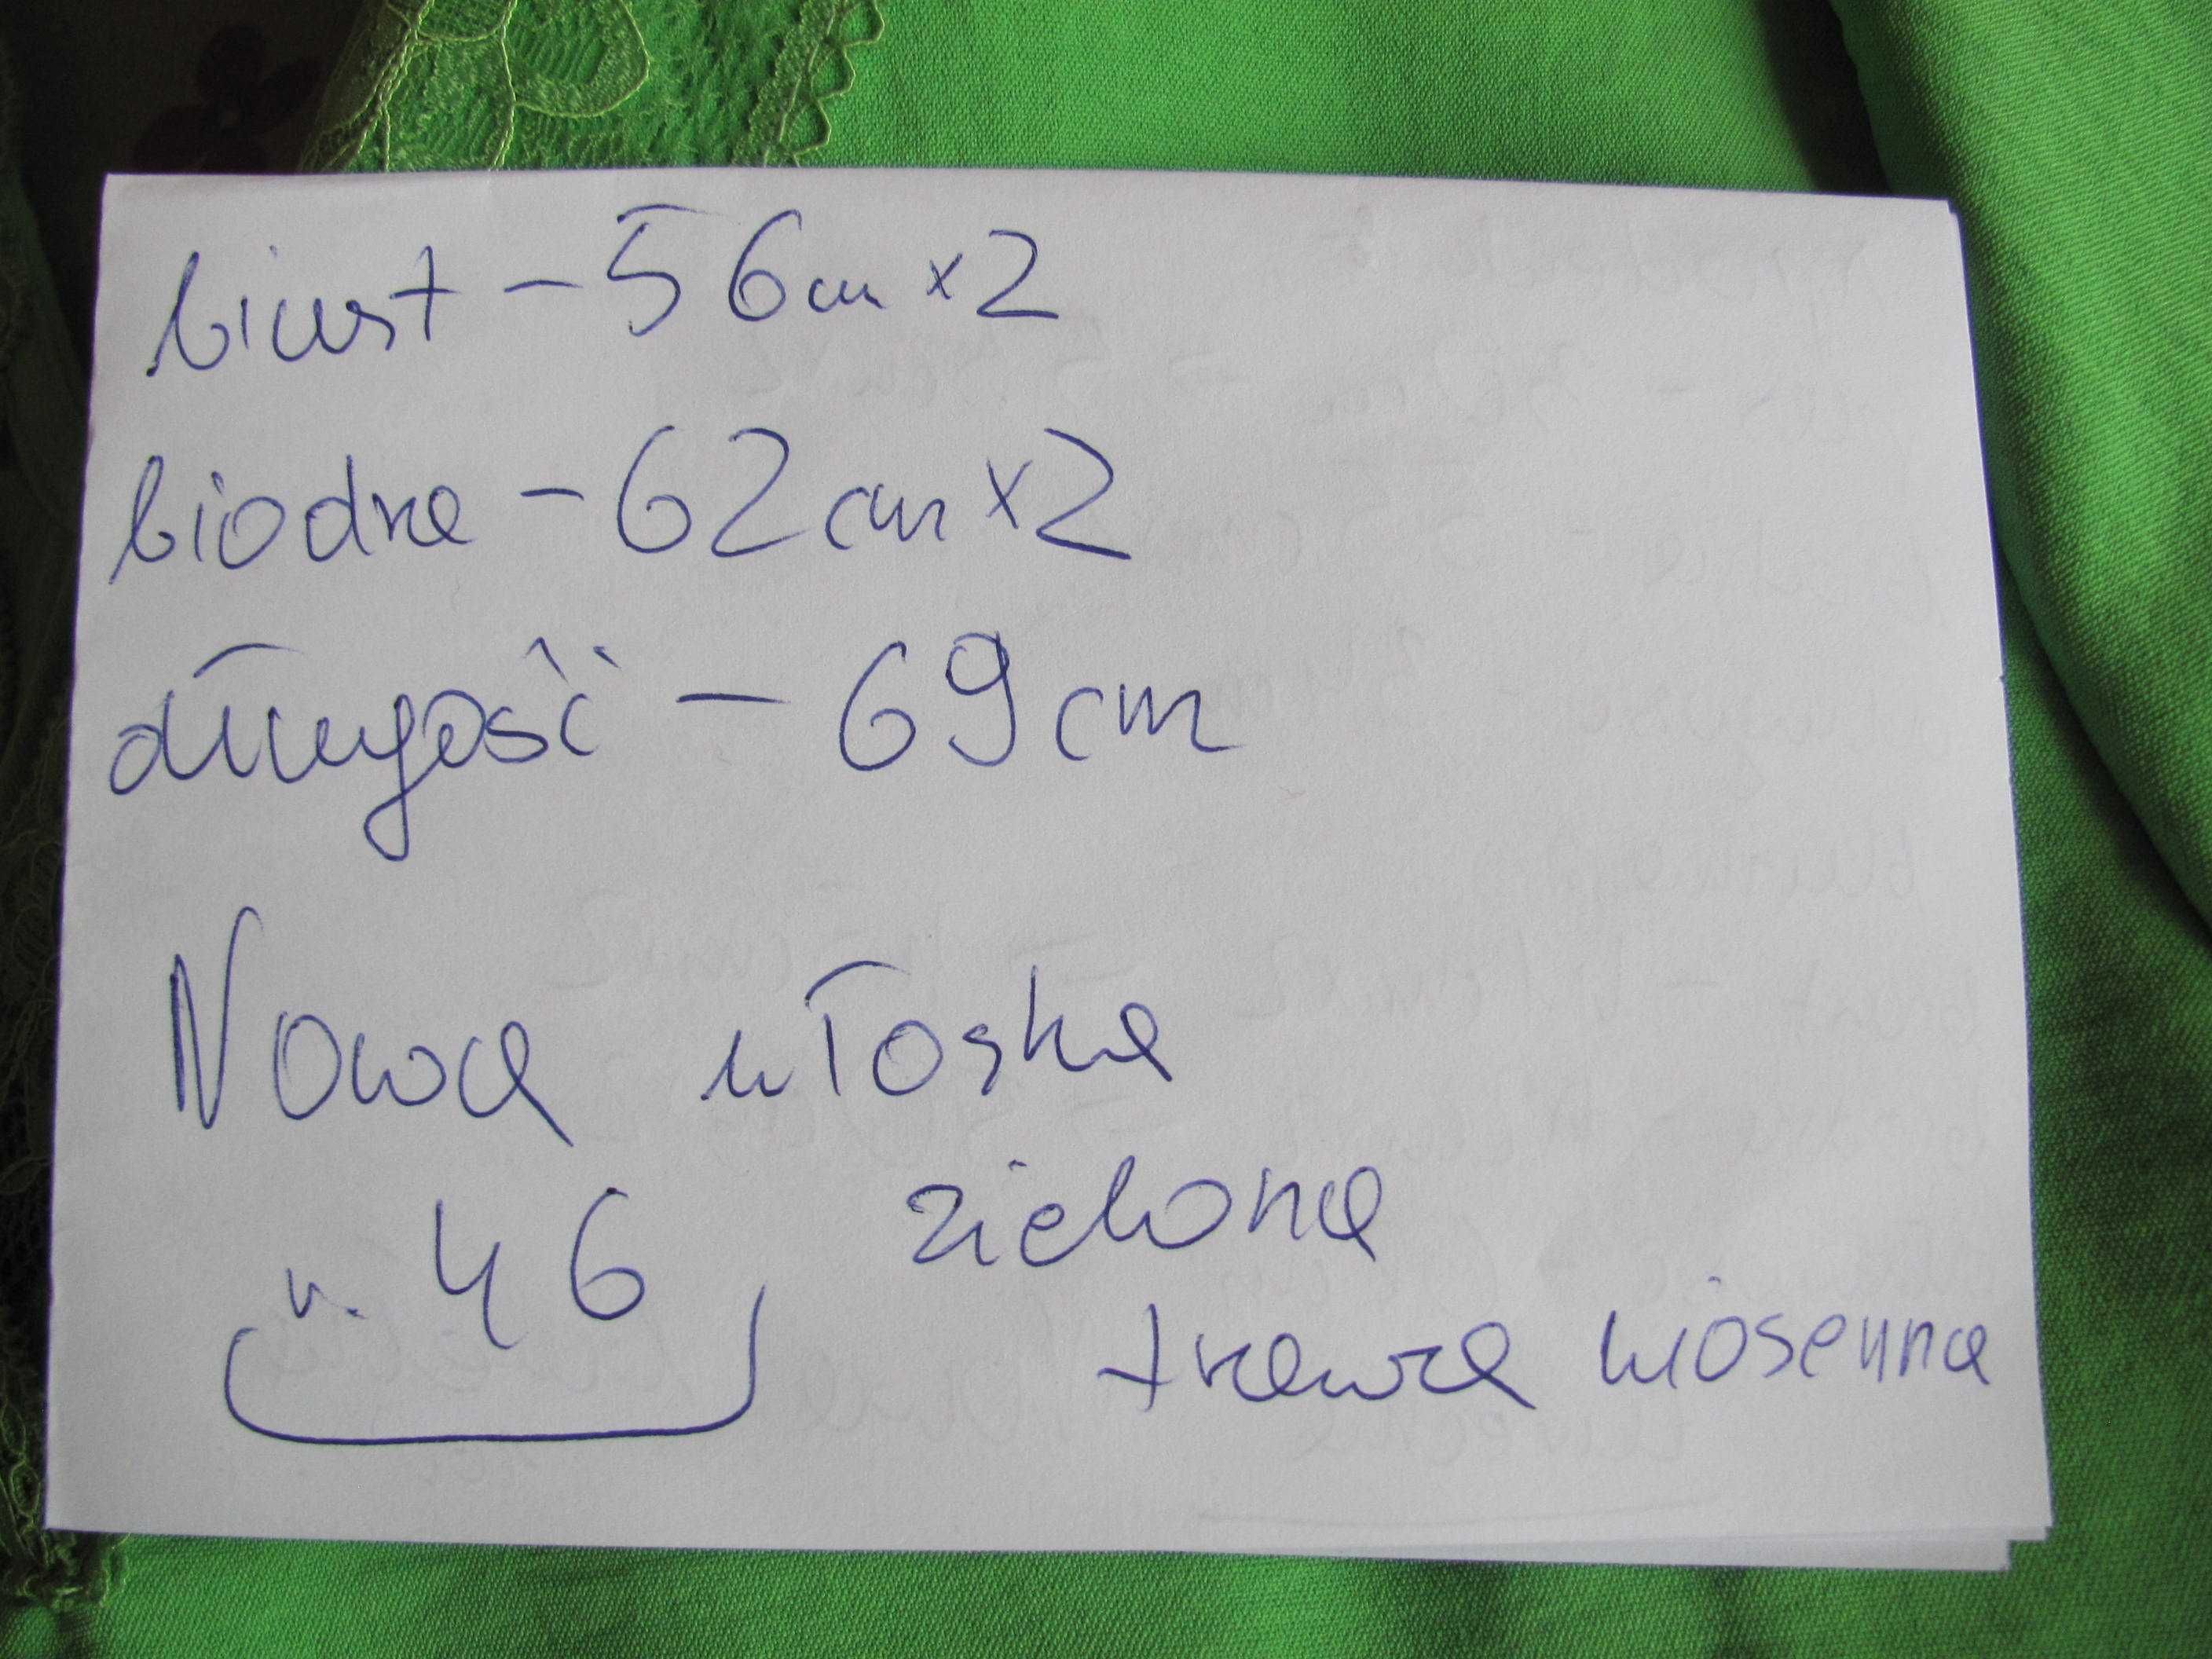 biust - 56cm x2
biodra - 62cm x2
długość - 69cm
Nowa włoska
r. 46 zielona
trawa wiosenna